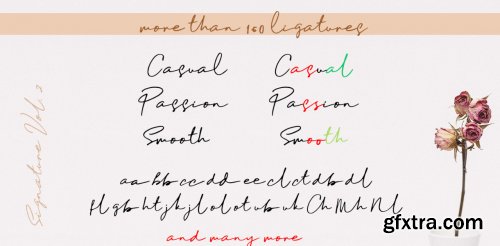 more than 160 ligatures
Casual Casual
Passion Passion
Smooth Smooth
Signature Vol. 2
aa bb cc dd ee cl ct db dl
fl gb ht jk jl ol ot ub uk Ch Mh Nl
and many more
gfxtra.com